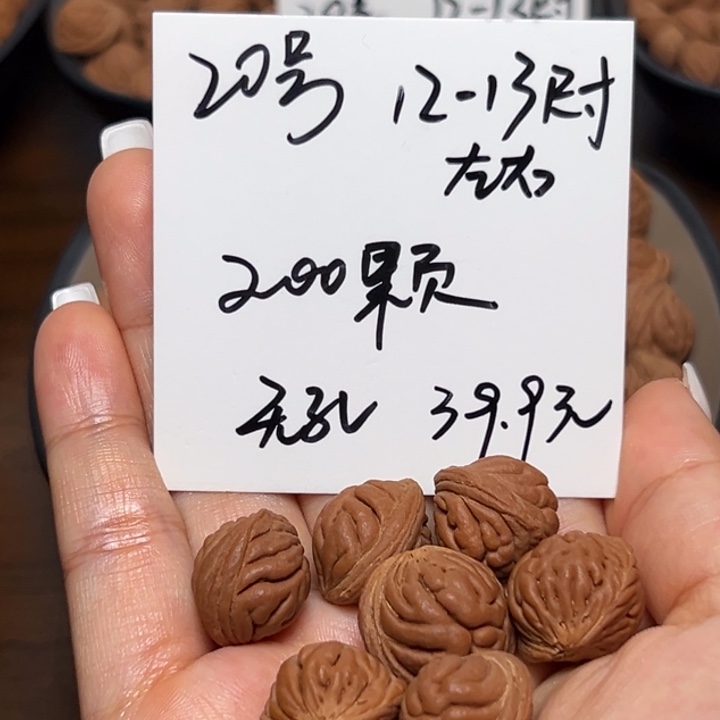 20号 12-13尉
左右
200颗
无孔 39.9元